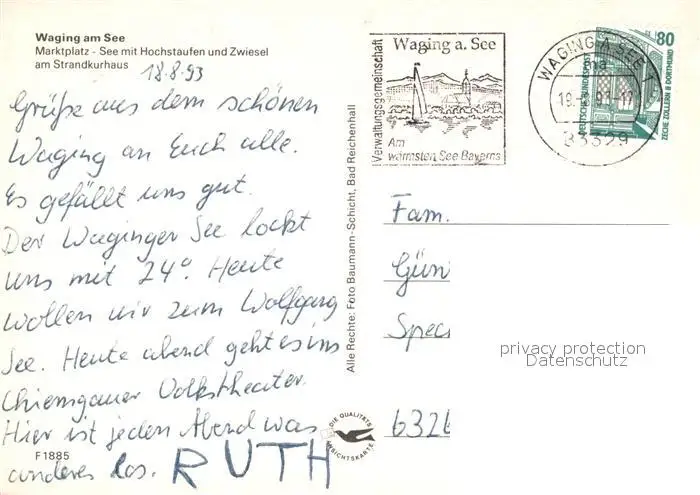 Waging am See
Marktplatz - See mit Hochstaufen und Zwiesel
am Strandkurhaus
18.8.93
Grüße aus dem schönen
Waging an Euch alle.
Es gefällt uns gut.
Der Waginger See lockt
uns mit 24°. Heute
wollen wir zum Wolfgang
See. Heute abend geht es ins
Chiemgauer Volkstheater.
Hier ist jeden Abend was
anderes los. RUTH
F1885
Alle Rechte: Foto Baumann-Schicht, Bad Reichenhall
DIE QUALITÄTS
ANSICHTSKARTE
Verwaltungsgemeinschaft
Waging a. See
Am
wärmsten See Bayerns
WAGING A. SEE 1
ma
83329
80
DEUTSCHE BUNDESPOST
ZECHE ZOLLERN II DORTMUND
Fam.
Gün
Spec
privacy protection
Datenschutz
6326